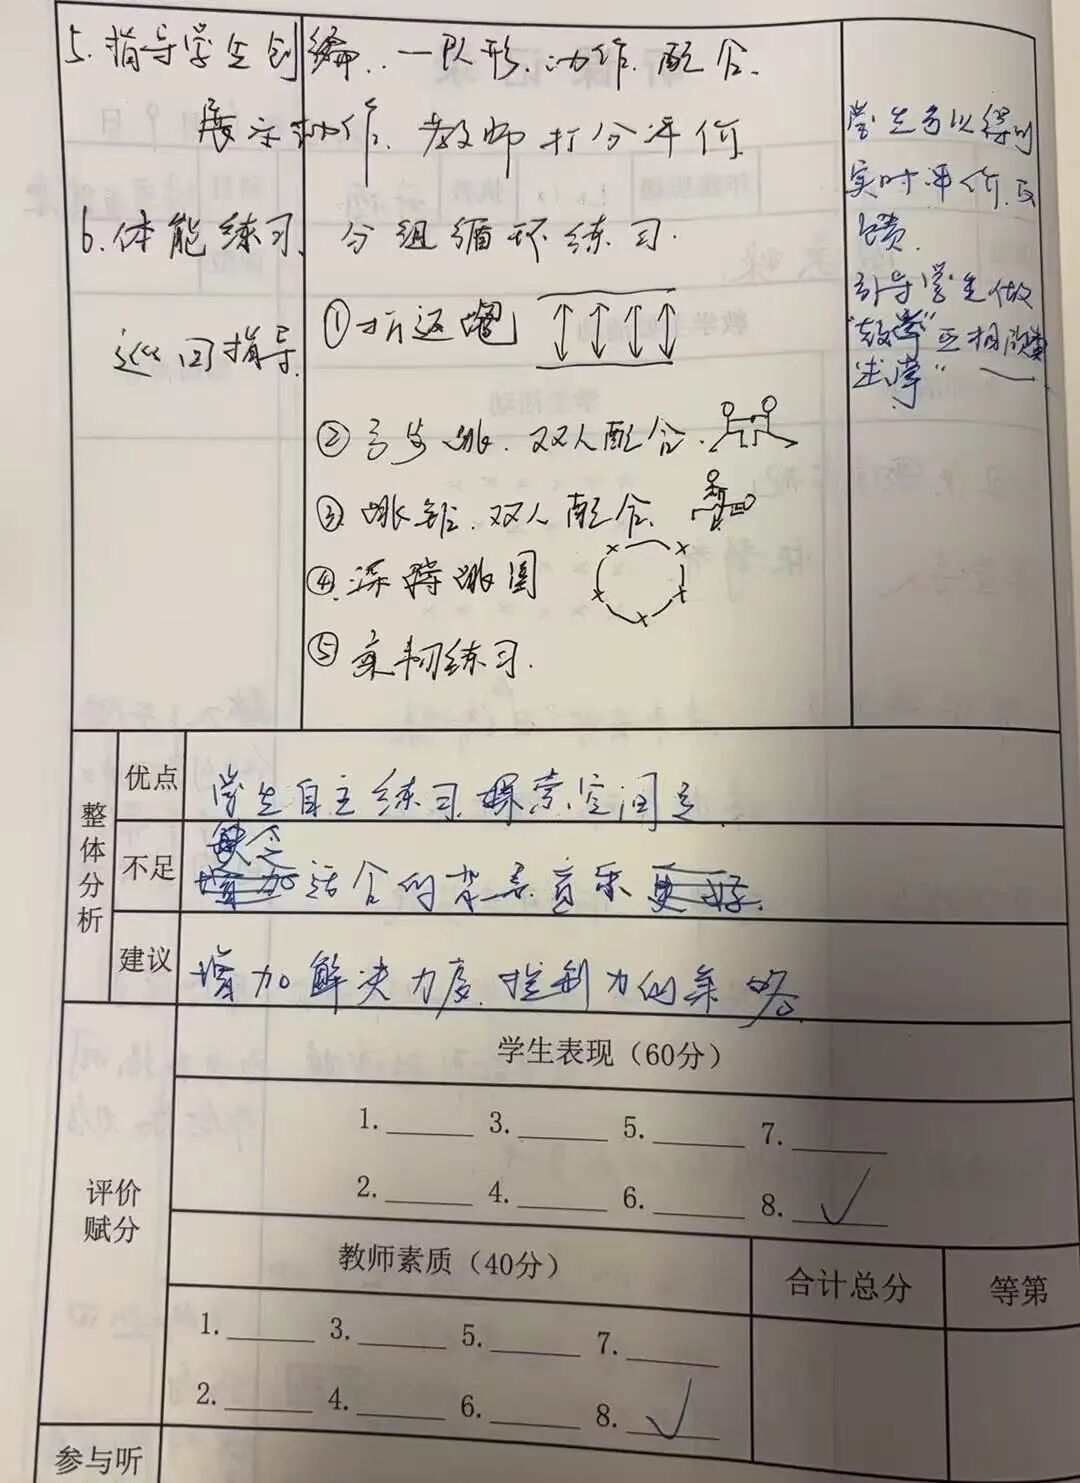 5. 指导学生创编. 一队形. 动作. 配合.
展示动作. 教师打分评价
6. 体能练习. 分组循环练习.
巡回指导.
① 折返跑
② 弓步跳. 双人配合.
③ 跳 双人配合.
④ 跳圈
⑤ 柔韧练习.
学生可以得到
实时评价.反
馈.
引导学生做
"教学"互相欣赏
学"
整体分析
优点
学生自主练习.探索空间多.
不足
缺乏
适合的背景音乐
建议
增加解决力度.控制力的策略.
评价
赋分
学生表现（60分）
1.______ 3.______ 5.______ 7.______
2.______ 4.______ 6.______ 8.___✓___
教师素质（40分） 合计总分 等第
1.______ 3.______ 5.______ 7.______
2.______ 4.______ 6.______ 8.___✓___
参与听